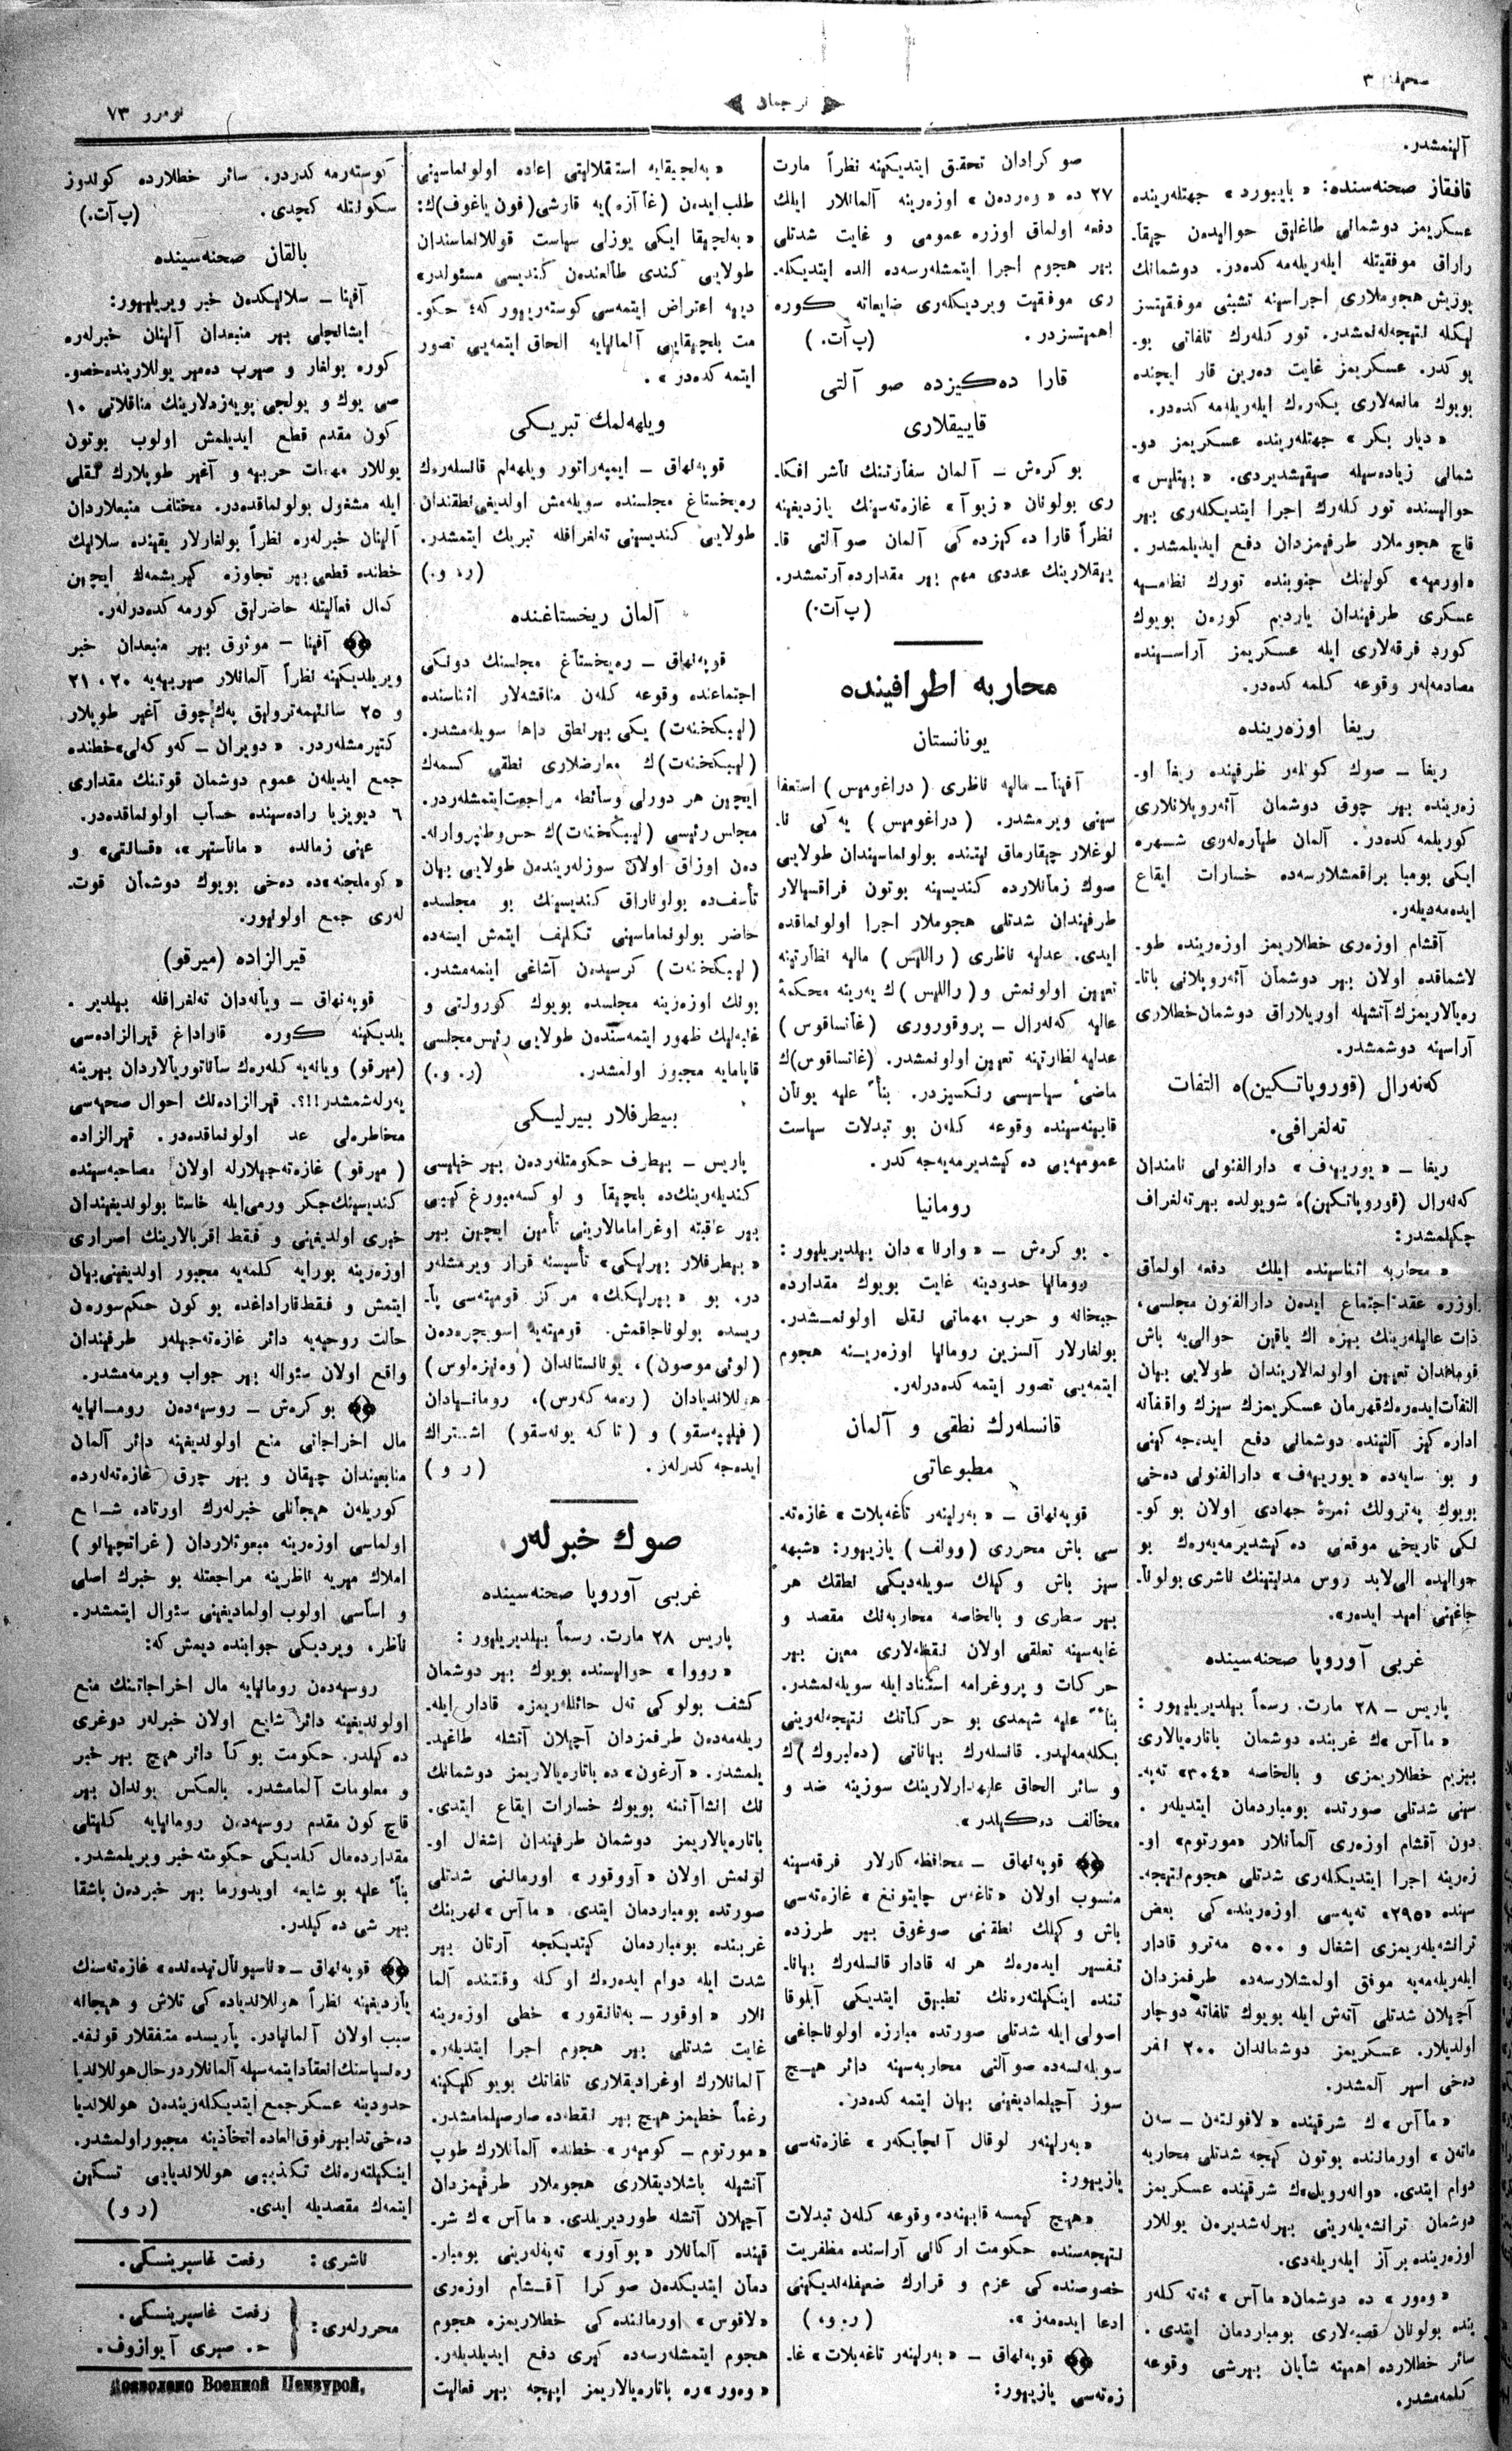 صحیفه ٣
ترجمان
نومرو ٧٣
آلنمشدر.
قافقاز صحنه‌سنده: «بایبورد» جهتلرینده
عسکریمز دوشمانی طاغلیق حوالیدن چیقا-
راراق موفقیتله ایله‌ریله‌مه‌کده‌در. دوشمانك
یوزیش هجوملاری اجراسینه تشبثی موفقیتسز
لیکله نتیجه‌له‌نمشدر. تورکلەرك تلفاتی بو-
یوکدر. عسکریمز غایت ده‌رین قار ایچنده
بویوك مانعه‌لاری یکەرەك ایله‌ریله‌مه‌کده‌در.
«دیار بکر» جهتلرینده عسکریمز دو-
شمانی زیاده‌سیله صیقیشدیردی. «بیتلیس»
حوالیسنده تورکلەرك اجرا ایتدیکلەری بیر
قاچ هجوملار طرفیمزدان دفع ایدیلمشدر.
«اورمیه» کولینك جنوبنده تورك نظامیه
عسکری طرفیندان یاردیم کورەن بویوك
کورد فرقه‌لاری ایله عسکریمز آراسینده
مصادمه‌لەر وقوعه کلمه‌کده‌در.
ریغا اوزەرینده
ریغا – صوك کونلەر ظرفینده ریغا او-
زەرینده بیر چوق دوشمان آئەروپلانلاری
کوریلمه‌کده‌در. آلمان طیارەلەری شهره
ایکی بومبا براقمشلارسه‌ده خسارات ایقاع
ایده‌مه‌دیلەر.
آقشام اوزەری خطلاریمز اوزەرینده طو-
لاشماقده اولان بیر دوشمان آئەروپلانی باتا-
رەیالاریمزك آتشیله اوریلاراق دوشمان خطلاری
آراسینه دوشمشدر.
کەنەرال (قوروپاتکین)ه التفات
تەلغرافی.
ریغا – «یورییەف» دارالفنونی نامندان
کەنەرال (قوروپاتکین)ه شویولده بیر تەلغراف
چکیلمشدر:
«محاربه اثناسینده ایلك دفعه اولماق
اوزره عقد اجتماع ایدەن دارالفنون مجلسی،
ذات عالیلەرینك بیزه اك یاقین حوالی‌یه باش
قوماندان تعیین اولونمالاریندان طولایی بیان
التفات ایدەرەك قهرمان عسکریمزك سیزك واقفانه
ادارەکز آلتینده دوشمانی دفع ایده‌جه‌کینی
و بو سایه‌ده «یورییەف» دارالفنونی دەخی
بویوك پەترونك ثمرۀ جهادی اولان بو کو-
نکی تاریخی موقعنی ده‌کیشدیرمه‌یەرەك بو
حوالیده الی‌لابد روس مدنیتینك ناشری بولونا-
جاغینی امید ایدەر».
غربی آوروپا صحنه‌سینده
پاریس – ٢٨ مارت. رسماً بیلدیریلیور:
«ماآس»ك غربنده دوشمان باتارەیالاری
بیزیم خطلاریمزی و بالخاصه «٣٠٤» تەپه-
سینی شدتلی صورتده بومباردمان ایتدیلەر.
دون آقشام اوزەری آلمانلار «مورتوم» او-
زەرینه اجرا ایتدیکلەری شدتلی هجوم نتیجه-
سینده «٢٩٥» تەپه‌سی اوزەرینده‌کی بعض
ترانشەیلەریمزی اشغال و ٥٠٠ مەترو قادار
ایله‌ریله‌مه‌یه موفق اولمشلارسه‌ده طرفمزدان
آچیلان شدتلی آتەش ایله بویوك تلفاته دوچار
اولدیلار. عسکریمز دوشماندان ٢٠٠ نفر
دەخی اسیر آلمشدر.
«ماآس»ك شرقینده «لافونتەن – سەن
ماتەن» اورماننده بوتون کیجه شدتلی محاربه
دوام ایتدی. «والەرویل»ك شرقینده عسکریمز
دوشمان ترانشەیلەرینی بیرلەشدیرەن یوللار
اوزەرینده بر آز ایله‌ریله‌دی.
«وەور» ده دوشمان «ماآس» ئەته‌کلەر
ینده بولونان قصبه‌لاری بومباردمان ایتدی.
سائر خطلارده اهمیته شایان بیرشی وقوعه
کلمه‌مشدر.
صوکرادان تحقیق ایتدیکینه نظراً مارت
٢٧ ده «وەردەن» اوزەرینه آلمانلار ایلك
دفعه اولماق اوزره عمومی و غایت شدتلی
بیر هجوم اجرا ایتمشلەرسه‌ده الده ایتدیکله-
ری موفقیت ویردیکلەری ضایعاته کوره
اهمیتسزدر.
(پ آت.)
قارا ده‌کیزده صو آلتی
قاییقلاری
بوکرەش – آلمان سفارتنك ناشر افکا-
ری بولونان «زیوآ» غازەتەسینك یازدیغینه
نظراً قارا ده‌کیزده‌کی آلمان صو آلتی قا-
ییقلارینك عددی مهم بیر مقدارده آرتمشدر.
(پ آت.)
محاربه اطرافینده
یونانستان
آفینا – مالیه ناظری (دراغومیس) استعفا
سینی ویرمشدر. (دراغومیس) یه‌کی نا-
لوغلار چیقارماق نیتنده بولونماسیندان طولایی
صوك زمانلارده کندیسینه بوتون فراقسیالار
طرفیندان شدتلی هجوملار اجرا اولونماقده
ایدی. عدلیه ناظری (راللیس) مالیه نظارتینه
تعیین اولونمش و (راللیس)ك یەرینه محکمۀ
عالیه کەنەرال – پروقوروری (غانساقوس)
عدلیه نظارتینه تعیین اولونمشدر. (غانساقوس)ك
ماضیٔ سیاسیسی رنکسیزدر. بناءً علیه یونان
قابینەسینده وقوعه کلەن بو تبدلات سیاست
عمومیه‌یی ده‌کیشدیرمه‌یه‌جه‌کدر.
رومانیا
بوکرەش – «وارنا» دان بیلدیریلیور:
رومانیا حدودینه غایت بویوك مقدارده
جبخانه و حرب مهماتی نقل اولونمشدر.
بولغارلار آنسزین رومانیا اوزەرینه هجوم
ایتمه‌یی تصور ایتمه‌کده‌درلەر.
قانسلەرك نطقی و آلمان
مطبوعاتی
قوپەنهاق – «بەرلینەر تاغەبلات» غازەته-
سی باش محرری (وولف) یازییور: «شبهه
سیز باش وکیلك سویله‌دیکی نطقك هر
بیر سطری و بالخاصه محاربه‌نك مقصد و
غایه‌سینه تعلقی اولان نقطه‌لاری معین بیر
حرکات و پروغرامه استناد ایله سویله‌نمشدر.
بناءً علیه شیمدی بو حرکاتك نتیجه‌لەرینی
بکله‌مه‌لیدر. قانسلەرك بیاناتی (دەلبروك)ك
و سائر الحاق علیهدارلارینك سوزینه ضد و
مخالف ده‌کیلدر».
قوپەنهاق – محافظه‌کارلار فرقه‌سینه
منسوب اولان «تاغەس چایتونغ» غازەتەسی
باش وکیلك نطقنی صوغوق بیر طرزده
تفسیر ایدەرەك هر نه قادار قانسلەرك بیانا-
تنده اینکیلتەرەنك تطبیق ایتدیکی آبلوقا
اصولی ایله شدتلی صورتده مبارزه اولوناجاغی
سویله‌نسه‌ده صو آلتی محاربه‌سینه دائر هیچ
سوز آچیلمادیغینی بیان ایتمه‌کده‌در.
«بەرلینەر لوقال آنچایکەر» غازەتەسی
یازییور:
«هیچ کیمسه قابینه‌ده وقوعه کلەن تبدلات
نتیجه‌سنده حکومت ارکانی آراسنده مظفریت
خصوصنده‌کی عزم و قرارك ضعیفله‌ندیکینی
ادعا ایده‌مه‌ز».
(ر. و.)
قوپەنهاق – «بەرلینەر تاغەبلات» غا-
زەتەسی یازییور:
«بەلچیقایه استقلالیتی اعاده اولونماسینی
طلب ایدەن (غاآزه)یه قارشی (فون یاغوف)ك:
«بەلچیقا ایکی یوزلی سیاست قوللانماسندان
طولایی کندی طالعندەن کندیسی مسئولدر»
دییه اعتراض ایتمه‌سی کوستەرییور که؛ حکو-
مت بلچیقایی آلمانیایه الحاق ایتمه‌یی تصور
ایتمه‌کده‌در».
ویلهەلمك تبریکی
قوپەنهاق – ایمپەراتور ویلهەلم قانسلەرەك
رەیخستاغ مجلسنده سویله‌مش اولدیغی نطقندان
طولایی کندیسینی تەلغرافله تبریك ایتمشدر.
(ر. و.)
آلمان ریخستاغنده
قوپەنهاق – رەیخستاغ مجلسنك دونکی
اجتماعنده وقوعه کلەن مناقشه‌لار اثناسنده
(لیبکخنەت) یکی بیر نطق داها سویله‌مشدر.
(لیبکخنەت)ك معارضلاری نطقی کسمه‌ك
ایچین هر دورلی وسائطه مراجعت ایتمشلەردر.
مجلس رئیسی (لیبکخنەت)ك حس وطنپروارانه-
دەن اوزاق اولان سوزلەریندەن طولایی بیان
تأسفده بولوناراق کندیسینك بو مجلسده
حاضر بولونماماسینی تکلیف ایتمش ایسه‌ده
(لیبکخنەت) کرسیدەن آشاغی اینمه‌مشدر.
بونك اوزەرینه مجلسده بویوك کورولتی و
غلبه‌لیك ظهور ایتمه‌سندەن طولایی رئیس مجلسی
قاپامایه مجبور اولمشدر.
(ر. و.)
بیطرفلار بیرلیکی
پاریس – بیطرف حکومتلەردەن بیر خیلیسی
کندیلەرینك‌ده بلچیقا و لوکسەمبورغ کیبی
بیر عاقبته اوغرامامالارینی تأمین ایچین بیر
«بیطرفلار بیرلیکی» تأسیسنه قرار ویرمشلەر
در. بو «بیرلیك»ك مرکز قومیتەسی پا-
ریسده بولوناجاقمش. قومیتەیه اسویچرەدەن
(لوئی موصون)، یونانستاندان (وەنیزەلوس)
هوللاندیادان (رەمەکەرس)، رومانیادان
(فیلیپەسقو) و (تاکه یونەسقو) اشتراك
ایده‌جه‌کدرلەر.
(ر و)
صوك خبرلەر
غربی آوروپا صحنه‌سینده
پاریس ٢٨ مارت. رسماً بیلدیریلیور:
«رووا» حوالیسنده بویوك بیر دوشمان
کشف بولوکی تەل حائلەریمزه قادار ایله-
ریله‌مه‌دەن طرفمزدان آچیلان آتشله طاغید-
یلمشدر. «آرغون» ده باتارەیالاریمز دوشمانك
نك انشاآتنه بویوك خسارات ایقاع ایتدی.
باتارەیالاریمز دوشمان طرفیندان اشغال او-
لونمش اولان «آووقور» اورماننی شدتلی
صورتده بومباردمان ایتدی. «ماآس» نهرینك
غربنده بومباردمان کیتدیکجه آرتان بیر
شدت ایله دوام ایدەرەك اوکله وقتنده آلما
نلار «اوقور – بەتانقور» خطی اوزەرینه
غایت شدتلی بیر هجوم اجرا ایتدیلەر.
آلمانلارك اوغرادیقلاری تلفاتك بویوکلیکینه
رغماً خطیمز هیچ بیر نقطه‌ده صارصیلمامشدر.
«مورتوم – کومیەر» خطنده آلمانلارك طوپ
آتشیله باشلادیقلاری هجوملار طرفیمزدان
آچیلان آتشله طوردیریلدی. «ماآس»ك شر-
قینده آلمانلار «بوآور» تەپه‌لەرینی بومبار-
دمان ایتدیکدەن صوکرا آقشام اوزەری
«لاقوس» اورماننده‌کی خطلاریمزه هجوم
هجوم ایتمشلەرسه‌ده کیری دفع ایدیلدیلەر.
«وەور»ره باتارەیالاریمز اییجه بیر فعالیت
کوستەرمه‌کدردر. سائر خطلارده کوندوز
سکونتله کچدی.
(پ آت.)
بالقان صحنه‌سینده
آفینا – سلانیکدەن خبر ویریلییور:
اینانجلی بیر منبعدان آلینان خبرلەره
کوره بولغار و صیرب دەمیر یوللارینده خصو-
صی یوك و یولجی پویەزدلارینك مناقلاتی ١٠
کون مقدم قطع ایدیلمش اولوب بوتون
یوللار مهمات حربیه و آغیر طوپلارك نقلی
ایله مشغول بولونماقده‌در. مختلف منبعلاردان
آلینان خبرلەره نظراً بولغارلار یقینده سلانیك
خطنده قطعی بیر تجاوزه کیریشمەك ایچین
کمال فعالیتله حاضرلیق کورمه‌کده‌درلەر.
آفینا – موثوق بیر منبعدان خبر
ویریلدیکینه نظراً آلمانلار صیربییه‌یه ٢٠، ٢١
و ٢٥ سانتیمەترولیق پەك چوق آغیر طوپلار
کتیرمشلەردر. «دویران – کەوکەلی» خطنده
جمع ایدیلەن عموم دوشمان قوتنك مقداری
٦ دیویزیا رادەسینده حساب اولونماقده‌در.
عینی زمانده «ماناستیر»، «قسانتی» و
«کوملجنه»ده دەخی بویوك دوشمان قوت-
لەری جمع اولونیور.
قیرالزاده (میرقو)
قوپەنهاق – ویانەدان تەلغرافله بیلدیر-
یلدیکینه کوره قاراداغ قیرالزادەسی
(میرقو) ویانه‌یه کلەرەك ساناتوریالاردان بیرینه
یەرلەشمشدر!!؟. قیرالزاده‌نك احوال صحیه‌سی
مخاطرەلی عد اولونماقده‌در. قیرالزاده
(میرقو) غازەتەجیلارله اولان مصاحبه‌سینده
کندیسینك جکر ورمی ایله خاستا بولوندیغیندان
خبری اولدیغینی و فقط اقربالارینك اصراری
اوزەرینه بورایه کلمه‌یه مجبور اولدیغینی بیان
ایتمش و فقط قاراداغده بوکون حکم سورەن
حالت روحیه‌یه دائر غازەتەجیلەر طرفیندان
واقع اولان سئواله بیر جواب ویرمه‌مشدر.
بوکرەش – روسیەدەن رومانیایه
مال اخراجاتی منع اولوندیغینه دائر آلمان
منابعیندان چیقان و بیر چوق غازەتەلەرده
کوریلەن هیجانلی خبرلەرك اورتاده شایع
اولماسی اوزەرینه مبعوثلاردان (غراتچیانو)
املاك میریه ناظرینه مراجعتله بو خبرك اصلی
و اساسی اولوب اولمادیغینی سئوال ایتمشدر.
ناظر، ویردیکی جوابنده دیمش که:
روسیەدەن رومانیایه مال اخراجاتنك منع
اولوندیغینه دائر شایع اولان خبرلەر دوغری
ده‌کیلدر. حکومت بوکا دائر هیچ بیر خبر
و معلومات آلمامشدر. بالعکس بوندان بیر
قاچ کون مقدم روسیەدەن رومانیایه کلیتلی
مقدارده مال کلدیکی حکومته خبر ویریلمشدر.
بناءً علیه بو شایعه اویدورما بیر خبردەن باشقا
بیر شی ده‌کیلدر.
قوپەنهاق – «ناسیونال تیدەنده» غازەتەسنك
یازدیغینه نظراً هوللاندیاده‌کی تلاش و هیجانه
سبب اولان آلمانیادر. پاریسده متفقلار قونفه-
رەنسیاسنك انعقاد ایتمه‌سیله آلمانلار درحال هوللاندیا
حدودینه عسکر جمع ایتدیکلەریندەن هوللاندیا
دەخی تدابیر فوق‌العاده اتخاذینه مجبور اولمشدر.
اینکیلتەرەنك تکذیبی هوللاندیایی تسکین
ایتمەك مقصدیله ایدی.
(ر و)
ناشری: رفعت غاسپرینسکی.
محررلەری:
رفعت غاسپرینسکی.
ح. صبری آیوازوف.
Дозволено Военной Цензурой,